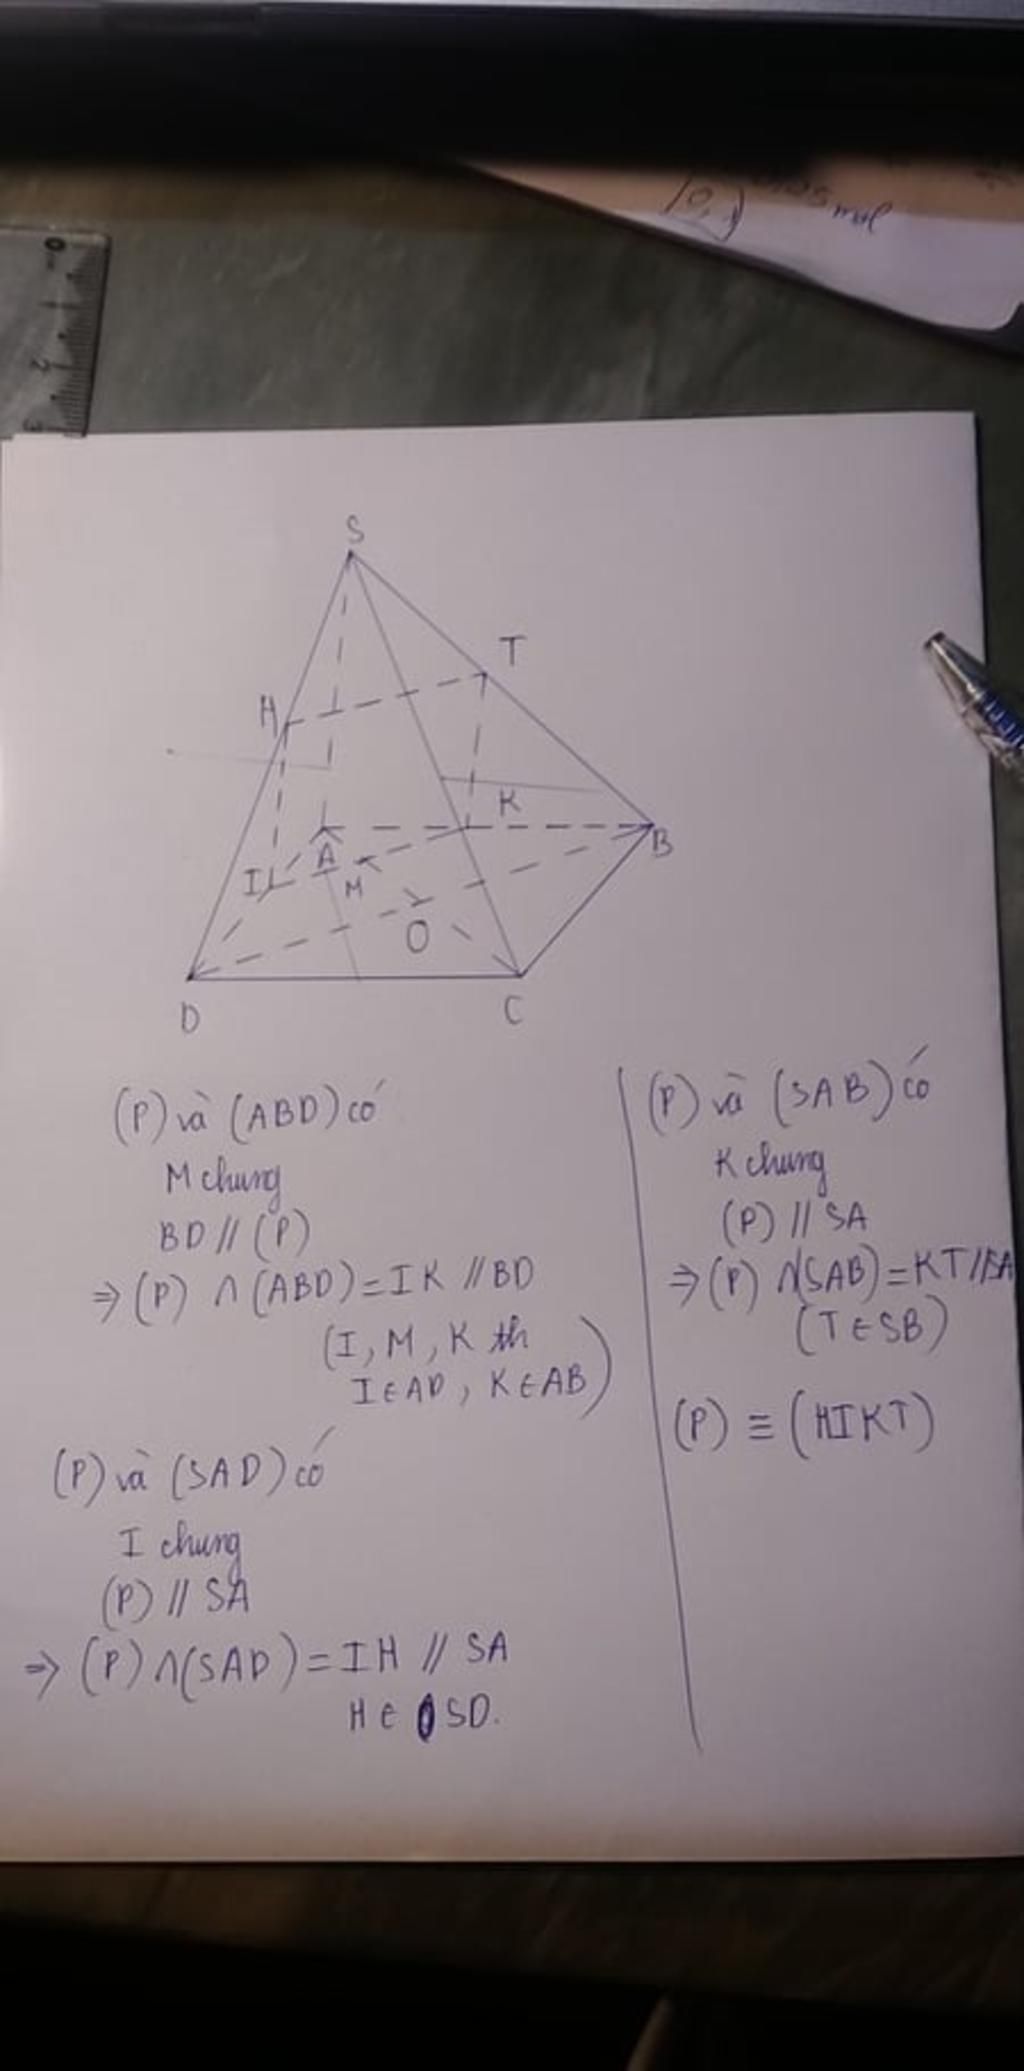 mol
0
1
2
3
S
T
H
K
A
B
I
M
O
D
C
(P) và (ABD) có
M chung
BD // (P)
⇒ (P) ∩ (ABD) = IK // BD
(I, M, K th
I ∈ AD, K ∈ AB)
(P) và (SAD) có
I chung
(P) // SA
⇒ (P) ∩ (SAD) = IH // SA
H ∈ SD.
(P) và (SAB) có
K chung
(P) // SA
⇒ (P) ∩ (SAB) = KT // SA
(T ∈ SB)
(P) ≡ (HIKT)